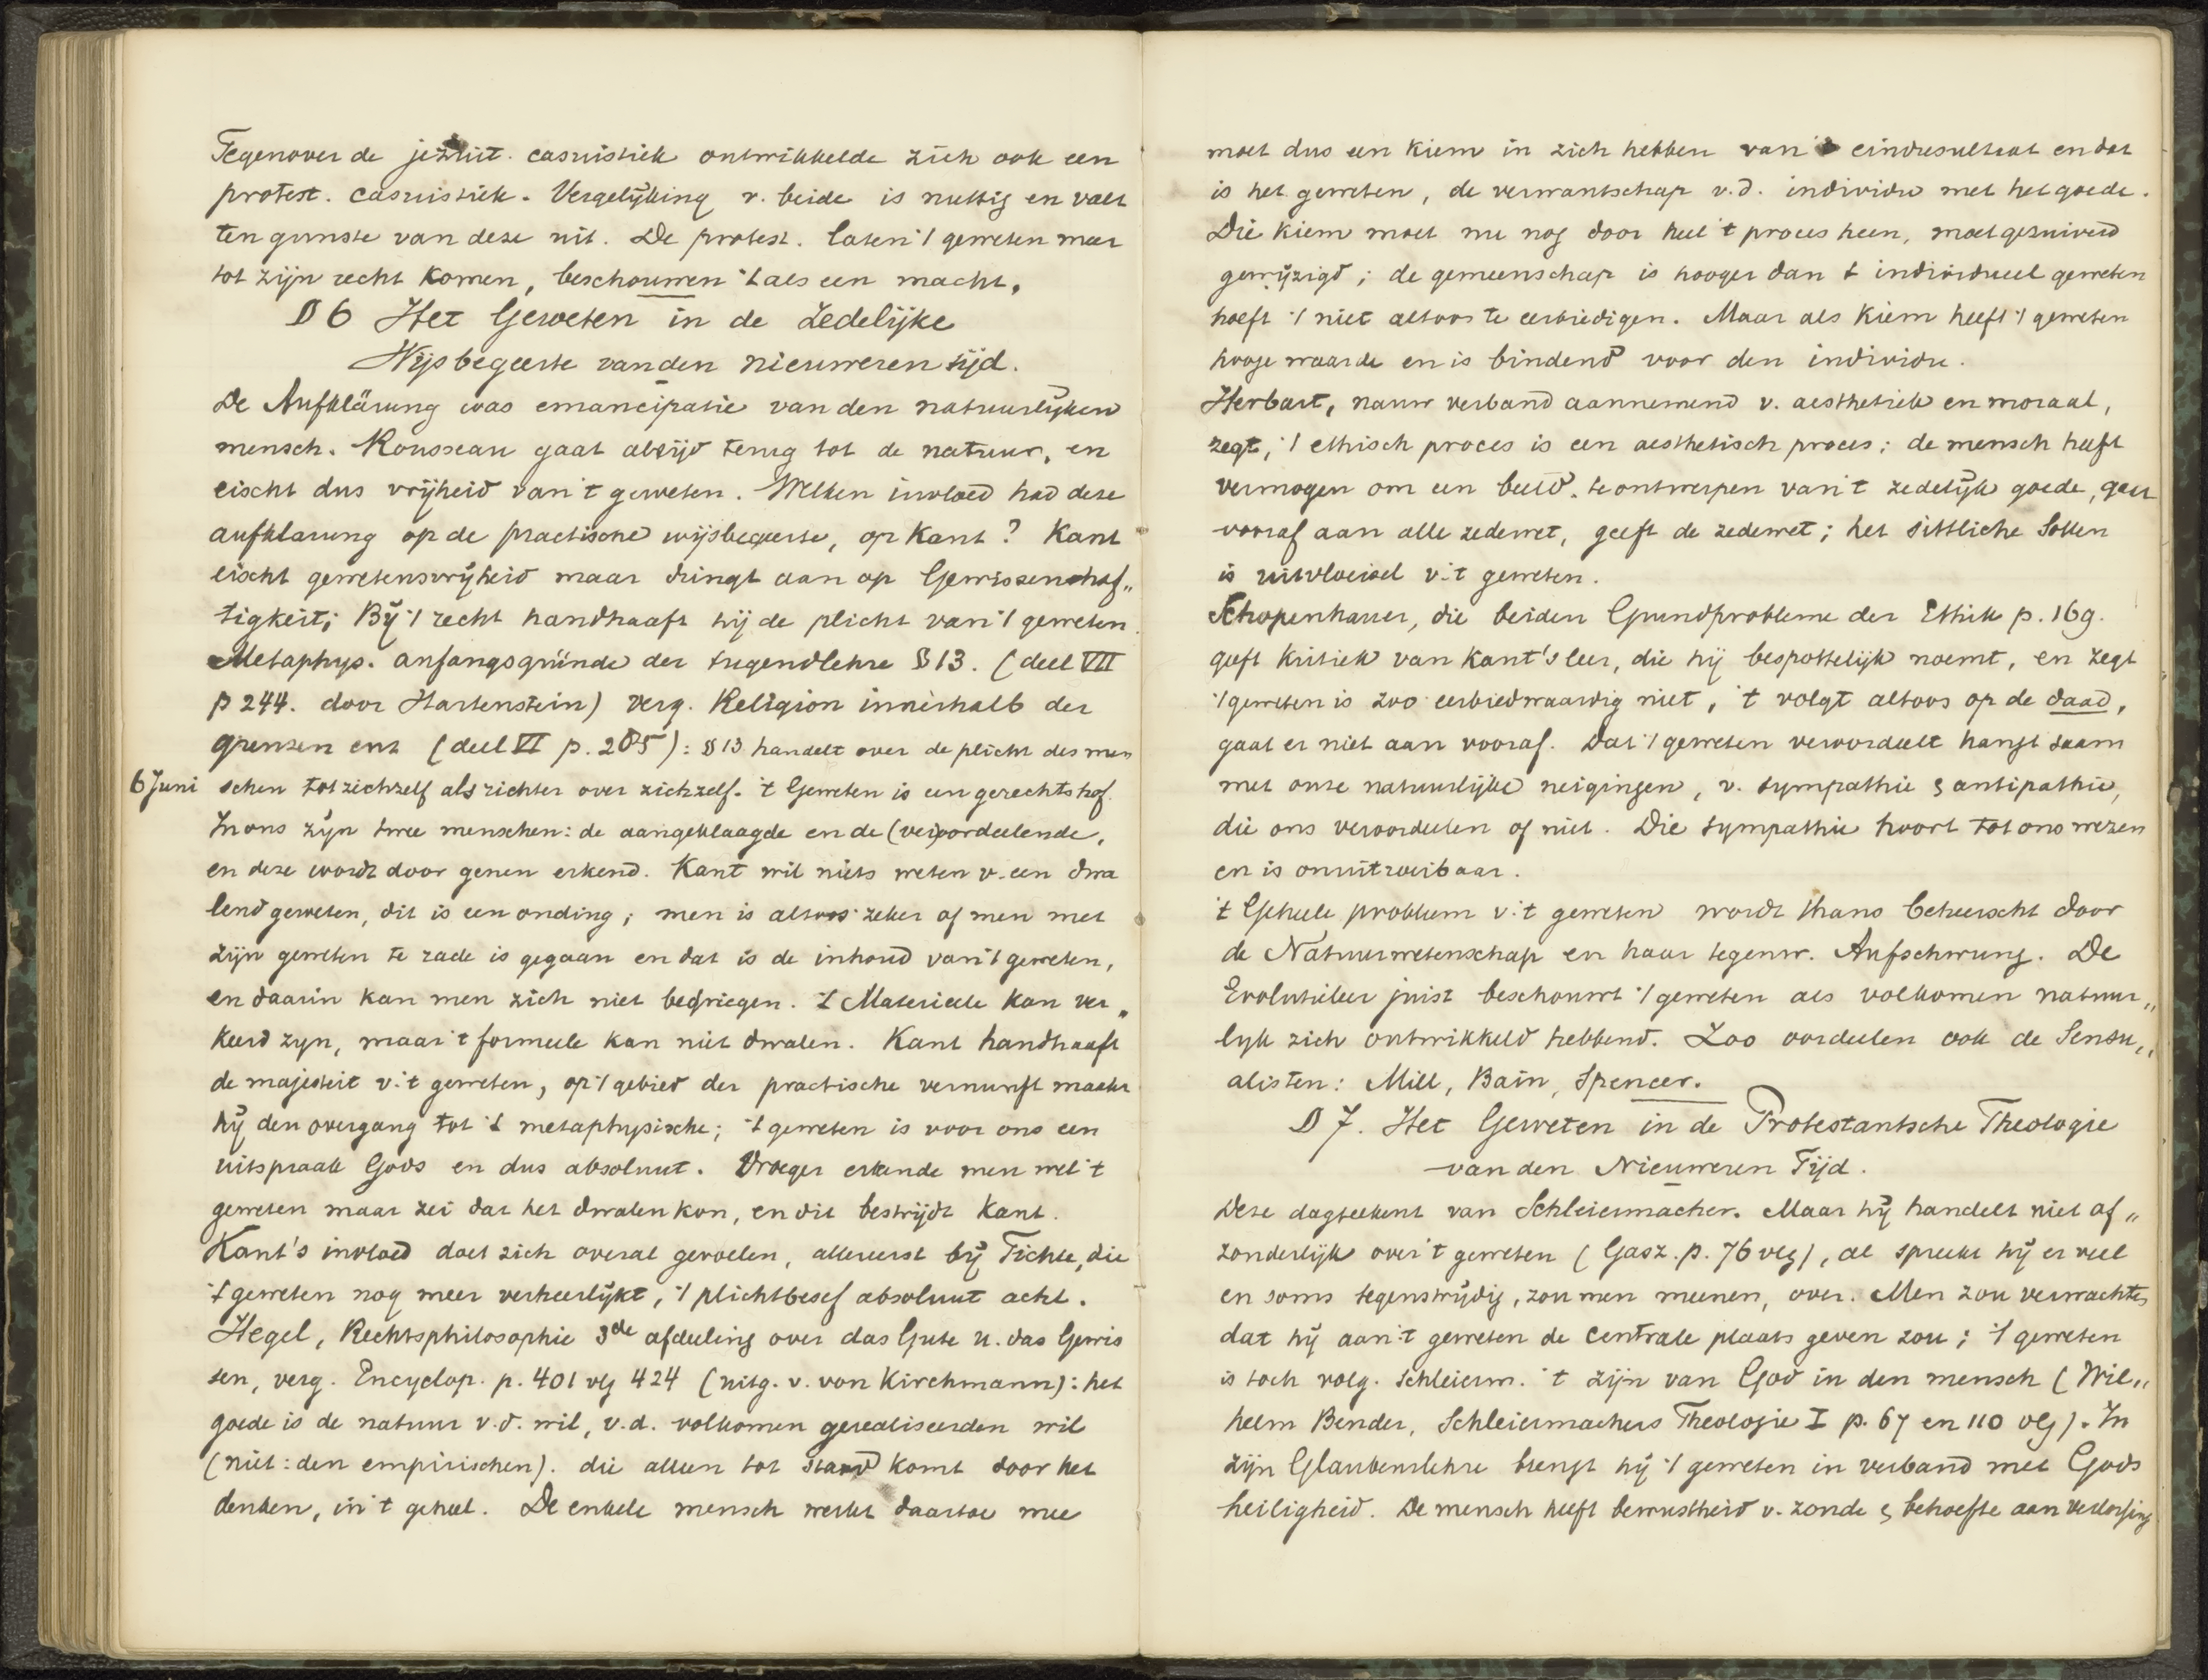 Tegenover de jezuit. casuistiek ontwikkelde zich ook een
protest. casuistiek. Vergelijking v. beide is nuttig en valt
ten gunste van deze uit. De protest. laten 't geweten meer
tot zijn recht komen, beschouwen 't als een macht.
§ 6 Het Geweten in de Zedelijke
Wijsbegeerte van den nieuweren tijd.
De Aufklärung was emancipatie van den natuurlijken
mensch. Rousseau gaat altijd terug tot de natuur, en
eischt dus vrijheid van 't geweten. Welken invloed had deze
aufklarung op de practische wijsbegeerte, op Kant? Kant
eischt gewetensvrijheid maar dringt aan op Gewissenhaf„
tigkeit; Bij 't recht handhaaft hij de plicht van 't geweten.
Metaphys. anfangsgründe der tugendlehre § 13. (deel VII
p 244. door Hartenstein) verg. Religion innerhalb der
grenzen enz (deel VI p. 285): § 13 handelt over de plicht des men
6 Juni schen tot zichzelf als richter over zichzelf. 't Geweten is een gerechtshof.
In ons zijn twee menschen: de aangeklaagde en de (ver)oordeelende,
en deze wordt door genen erkend. Kant wil niets weten v. een dwa
lend geweten, dit is een onding; men is altoos zeker of men met
zijn geweten te rade is gegaan en dat is de inhoud van 't geweten,
en daarin kan men zich niet bedriegen. 't Materieele kan ver„
keerd zijn, maar 't formeele kan niet dwalen. Kant handhaaft
de majesteit v. 't geweten, op 't gebied der practische vernunft maakt
hij den overgang tot 't metaphysische; 't geweten is voor ons een
uitspraak Gods en dus absoluut. Vroeger erkende men wel 't
geweten maar zei dat het dwalen kon, en dit bestrijdt Kant.
Kant's invloed doet zich overal gevoelen, allereerst bij Fichte, die
't geweten nog meer verheerlijkt, 't plichtbesef absoluut acht.
Hegel, Rechtsphilosophie 3de afdeeling over das Gute u. das Gewis
sen, verg. Encyclop. p. 401 vlg 424 (uitg. v. von Kirchmann): het
goede is de natuur v.d. wil, v.d. volkomen gerealiseerden wil
(niet: den empirischen). die alleen tot stand komt door het
denken, in 't geheel. De enkele mensch werkt daartoe mee
moet dus een kiem in zich hebben van 't eindresultaat en dat
is het geweten, de verwantschap v.d. individu met het goede.
Die kiem moet nu nog door heel 't proces heen, moet gezuiverd
gewijzigd; de gemeenschap is hooger dan 't individueel geweten
hoeft 't niet altoos te eerbiedigen. Maar als kiem heeft 't geweten
hooge waarde en is bindend voor den individu.
Herbart, nauw verband aannemend v. aesthetiek en moraal,
zegt, 't ethisch proces is een aesthetisch proces: de mensch heeft
vermogen om een beeld te ontwerpen van 't zedelijk goede, gaat
vooraf aan alle zedewet, geeft de zedewet; het sittliche Sollen
is uitvloeisel v. 't geweten.
Schopenhauer, die beiden Grundprobleme der Ethik p. 169.
geeft kritiek van Kant's leer, die hij bespottelijk noemt, en zegt
't geweten is zoo eerbiedwaardig niet, 't volgt altoos op de daad,
gaat er niet aan vooraf. Dat 't geweten veroordeelt hangt saam
met onze natuurlijke neigingen, v. sympathie & antipathie,
die ons veroordeelen of niet. Die sympathie hoort tot ons wezen
en is onuitroeibaar.
't Geheele probleem v. 't geweten wordt thans beheerscht door
de Natuurwetenschap en haar tegenw. Aufschwung. De
Evolutieleer juist beschouwt 't geweten als volkomen natuur„
lijk zich ontwikkeld hebbend. Zoo oordeelen ook de Sensu„
alisten: Mill, Bain, Spencer.
§ 7. Het Geweten in de Protestantsche Theologie
van den Nieuweren Tijd.
Deze dagteekent van Schleiermacher. Maar hij handelt niet af„
zonderlijk over 't geweten (Gasz. p. 76 vlg), al spreekt hij er veel
en soms tegenstrijdig, zou men meenen, over. Men zou verwachten
dat hij aan 't geweten de centrale plaats geven zou; 't geweten
is toch volg. Schleierm. 't zijn van God in den mensch (Wil„
helm Bender, Schleiermachers Theologie I p. 67 en 110 vlg). In
zijn Glaubenslehre brengt hij 't geweten in verband met Gods
heiligheid. De mensch heeft bewustheid v. zonde & behoefte aan verlossing